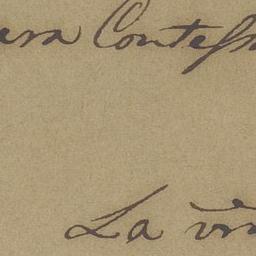 ara Contess
La vr